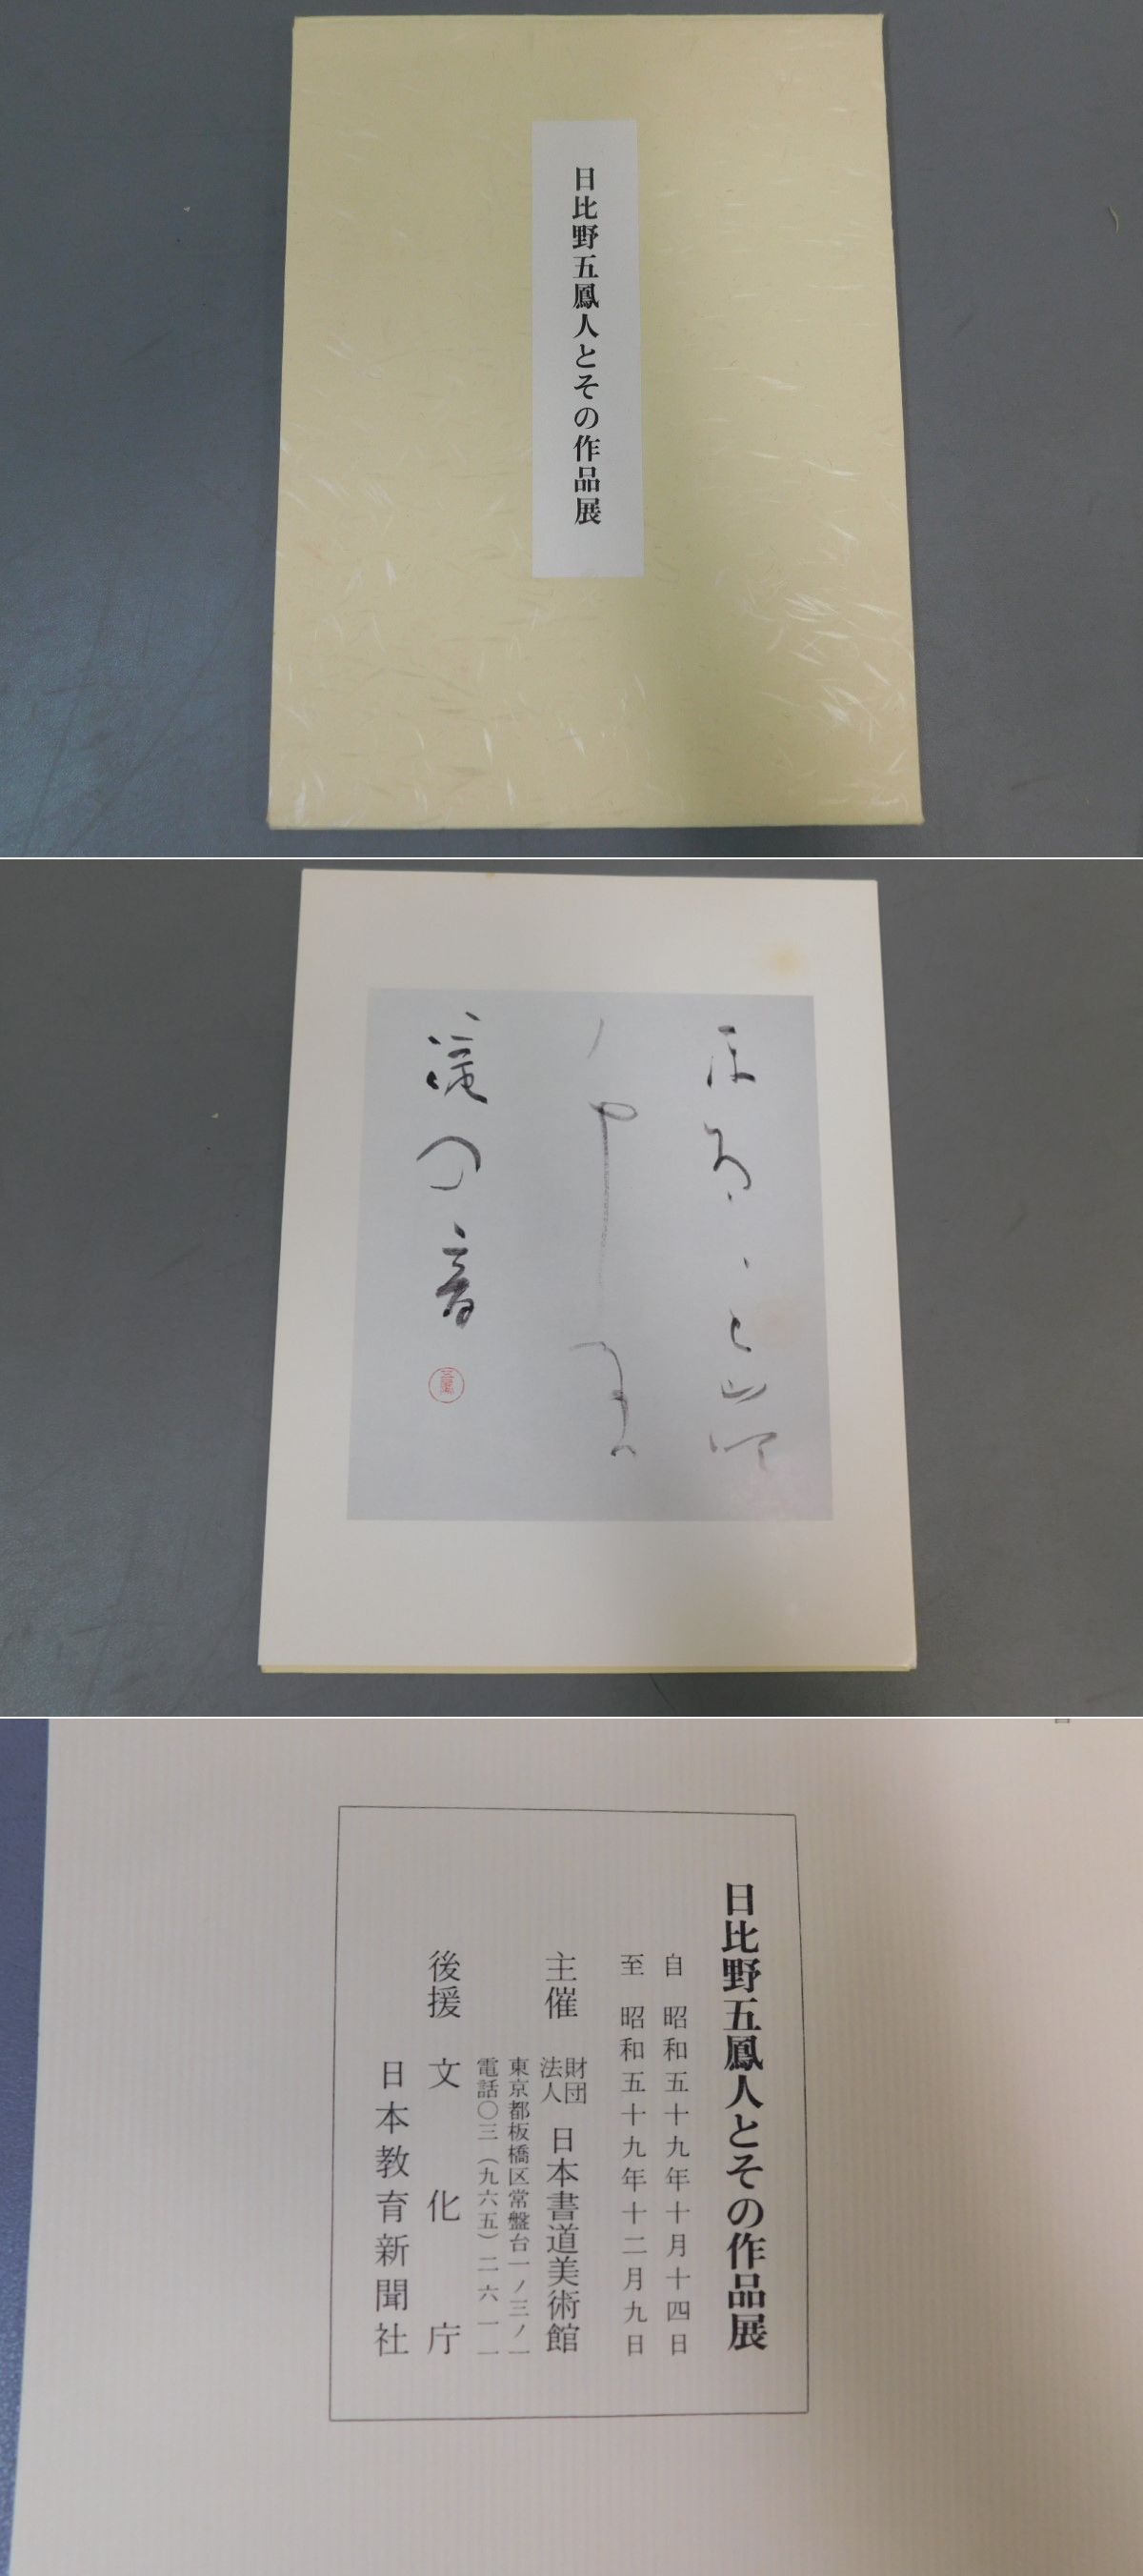 日比野五鳳人とその作品展
滝の音
日比野五鳳人とその作品展
自 昭和五十九年十月十四日
至 昭和五十九年十二月九日
主催 財団法人 日本書道美術館
東京都板橋区常盤台一ノ三ノ一
電話〇三(九六五)二六一一
後援 文化庁
日本教育新聞社